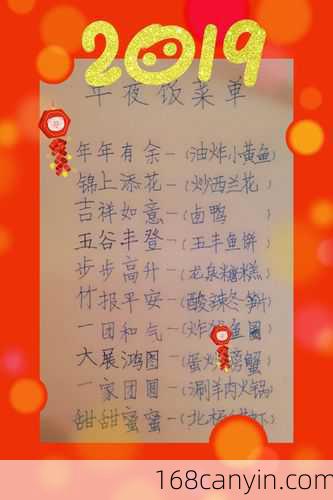 2019
年夜饭菜单
年年有余－(油炸小黄鱼)
锦上添花－(炒西兰花)
吉祥如意－(卤鸭)
五谷丰登－(五丰鱼饼)
步步高升－(龙泉糖糕)
竹报平安－(酸辣冬笋)
一团和气－(炸鱼圆
大展鸿图－(蛋炒螃蟹
一家团圆－(涮羊肉火锅)
甜甜蜜蜜－(北极虾)
168canyin.com